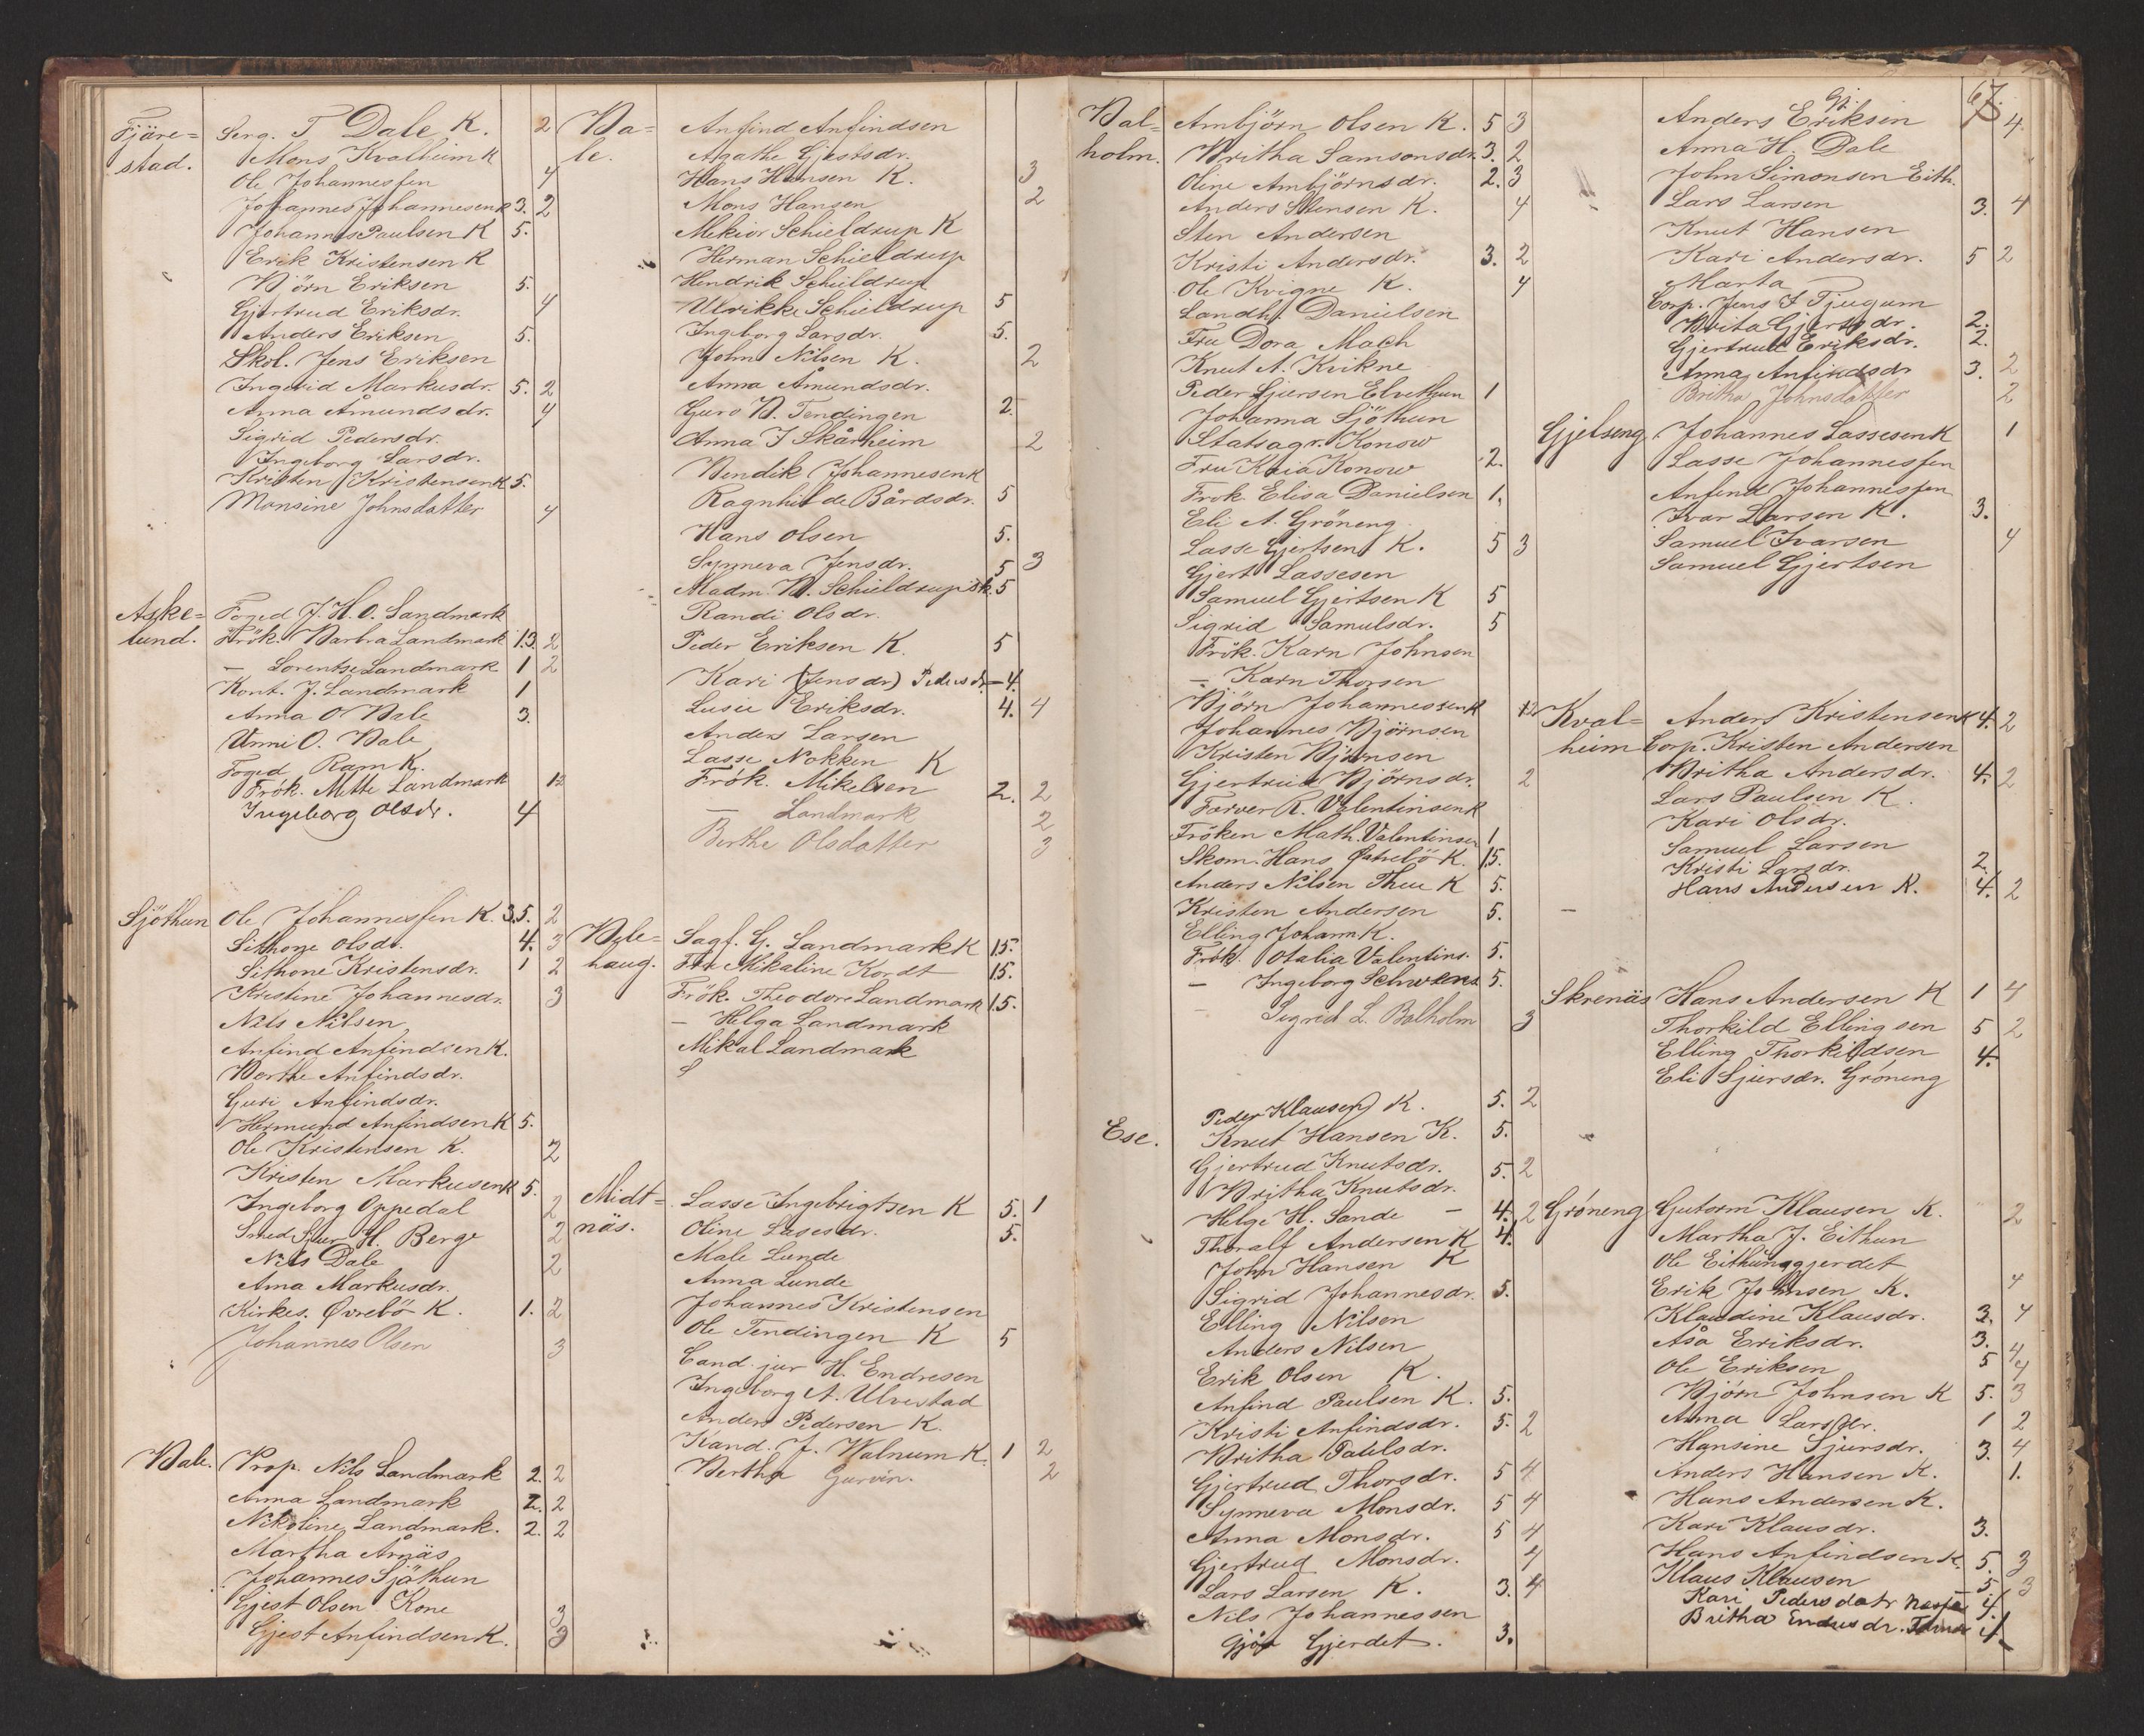 Fjäre=
stad.
Serg. T Dale K. 2
Mons Kvalheim K
Ole Johannessen 4
Johannes Johannesen K 3. 2
Johannes Paulsen K 5.
Erik Kristensen K
Björn Eriksen 5.
Gjertrud Eriksdr. 4
Anders Eriksen 5.
Skol. Jens Eriksen
Ingerid Markusdr. 5. 2
Anna Åmundsdr. 4
Sigrid Pedersdr.
Ingeborg Larsdr.
Kristen Kristensen K 5.
Monsine Johnsdatter 4
Aske=
lund.
Foged J. H. O. Landmark
Frök. Barbra Landmark 13. 2
— Lorentse Landmark 1 2
Kont. J. Landmark 1
Anna O Bale 3.
Unni O. Bale
Foged Ram K.
Frök. Mette Landmark 12
Ingeborg Olsdr. 4
Sjöthun
Ole Johannessen K. 3.5. 2
Sithone Olsdr. 4. 3
Sithone Kristensdr. 1 2
Kristine Johannesdr. 3
Nils Nilsen
Anfind Anfindsen K.
Berthe Anfindsdr.
Guri Anfindsdr.
Hermund Anfindsen K 5.
Ole Kristensen K. 2
Kristen Markusen K 5.
Ingeborg Oppedal 2
Smed Sjur H. Berge 2
Nils Dale 2
Ana Markusdr.
Kirkes. Øvrebö K. 1. 2
Johannes Olsen 3
Bale.
Prop. Nils Landmark 2. 2
Anna Landmark 2. 2
Nikoline Landmark. 2. 2
Martha Årnäs
Johannes Sjöthun
Gjest Olsen Kone 3
Gjest Anfindsen K. 3
Ba=
le.
Anfind Anfindsen
Agathe Gjestsdr.
Hans Hansen K. 3
Mons Hansen 2
Mekior Schieldrup K
Herman Schieldrup
Hendrik Schieldrup
Ulrikke Schieldrup 5
Ingeborg Larsdr. 5.
John Nilsen K. 2
Anna Åmundsdr.
Guro B. Tendingen 2.
Anna I Skårheim 2
Bendik Johannesen K
Ragnhilde Bårdsdr. 5
Hans Olsen 5.
Synneva Jensdr. 5 3
Madm. B. Schieldrup 5
Randi Olsdr.
Peder Eriksen K. 5
Kari (Jensdr) Pedersdr — 4.
Lusie Eriksdr. 4. 4
Anders Larsen
Lasse Nokken K
Frök. Mikelsen 2. 2
— Landmark 2
Berthe Olsdatter 3
Bale=
haug.
Sagf. G. Landmark K 15.
Fru Mikaline Kordt 15.
Frök. Theodore Landmark 15.
— Helga Landmark
Mikal Landmark
Midt=
näs.
Lasse Ingebrigtsen K 5. 1
Oline Lasesdr. 5.
Male Lunde
Anna Lunde
Johannes Kristensen
Ole Tendingen K 5
Cand. jur H. Endresen
Ingeborg A. Ulvestad
Anders Pedersen K.
Kand. J. Walnum K. 1 2
Bertha Gurvin. 2
Bal=
holm.
Ambjörn Olsen K. 5 3
Britha Samsonsdr. 3. 2
Oline Ambjörnsdr. 2. 3
Anders Stensen K. 4
Sten Andersen
Kristi Andersdr. 3. 2
Ole Kvigne K. 4
Landh. Danielsen
Fru Dora Mach
Knut A. Kvikne
Peder Sjursen Elvethun 1
Johanna Sjöthun
Statsagr. Konow
Fru Kaia Konow 2.
Frok Elisa Danielsen 1.
Eli A. Gröneng
Lasse Gjertsen K. 5 3
Gjert Lassesen
Samuel Gjertsen K 5
Sigrid Samulsdr. 5
Frök. Karn Johnsen
— Karn Thorsen
Björn Johannessen K 12
Johannes Björnsen
Kristen Björnsen
Gjertrud Björnsdr. 2
Farver R. Valentinsen K
Fröken Math. Valentinsen 1
Skom. Hans Østrebö K. 15.
Anders Nilsen Thue K 5.
Kristen Andersen 5.
Elling Johann K.
Frök. Otalia Valentins. 5.
— Ingeborg Schwens 5.
Sigrid L. Balholm 3
Ese.
Peder Klausen K. 5. 2
Knut Hansen K. 5.
Gjertrud Knutsdr. 5. 2
Britha Knutsdr.
Helge H. Sande — 4. 2
Thoralf Andersen K 4.
John Hansen K
Sigrid Johannesdr. 5.
Elling Nilsen
Anders Nilsen
Erik Olsen K.
Anfind Paulsen K. 5.
Kristi Anfindsdr. 5. 2
Britha Paulsdr.
Gjertrud Thorsdr. 5 4
Synneva Monsdr. 5 4
Anna Monsdr. 5 4
Gjertrud Monsdr. 4
Lars Larsen K. 3. 4
Nils Johannessen
Gjör Gjerdet. 3.
67.
Anders Eriksen 4
Anna H. Dale
John Simonsen Eith.
Lars Larsen 3. 4
Knut Hansen
Kari Andersdr. 5 2
Marta
Corp. Jens J Tjugum
Brita Gjertsdr. 2.
Gjertrud Eriksdr. 2.
Anna Anfindsdr 3. 2
Britha Johnsdatter 2
Gjelseng.
Johannes Lassesen K 1
Lasse Johannessen
Anfend Johannessen
Ivar Larsen K. 3.
Samuel Ivarsen 4
Samuel Gjertsen
Kval=
heim
Anders Kristensen K 4. 2
Corp. Kristen Andersen
Britha Andersdr. 4. 2
Lars Paulsen K.
Kari Olsdr.
Samuel Larsen
Kristi Larsdr. 2.
Hans Andersen K. 4. 2
Skrenäs
Hans Andersen K 1 4
Thorkild Ellingsen 5 2
Elling Thorkildsen 4.
Eli Sjursdr. Gröneng
Gröneng
Gutorm Klausen K. 2
Martha J. Eithun
Ole Eithunggjerdet
Erik Johnsen K. 4
Klaudine Klausdr. 3. 4
Åså Eriksdr. 3. 4
Ole Eriksen 5 4
Björn Johnsen K 5. 3
Anna Larsdr. 1 2
Hansine Sjursdr. 3. 4
Anders Hansen K. 1.
Hans Andersen K.
Kari Klausdr. 3.
Hans Anfindsen K. 5. 3
Klaus Klausen 5 3
Kari Pedersdatr 4.
Britha Endresdr. 4